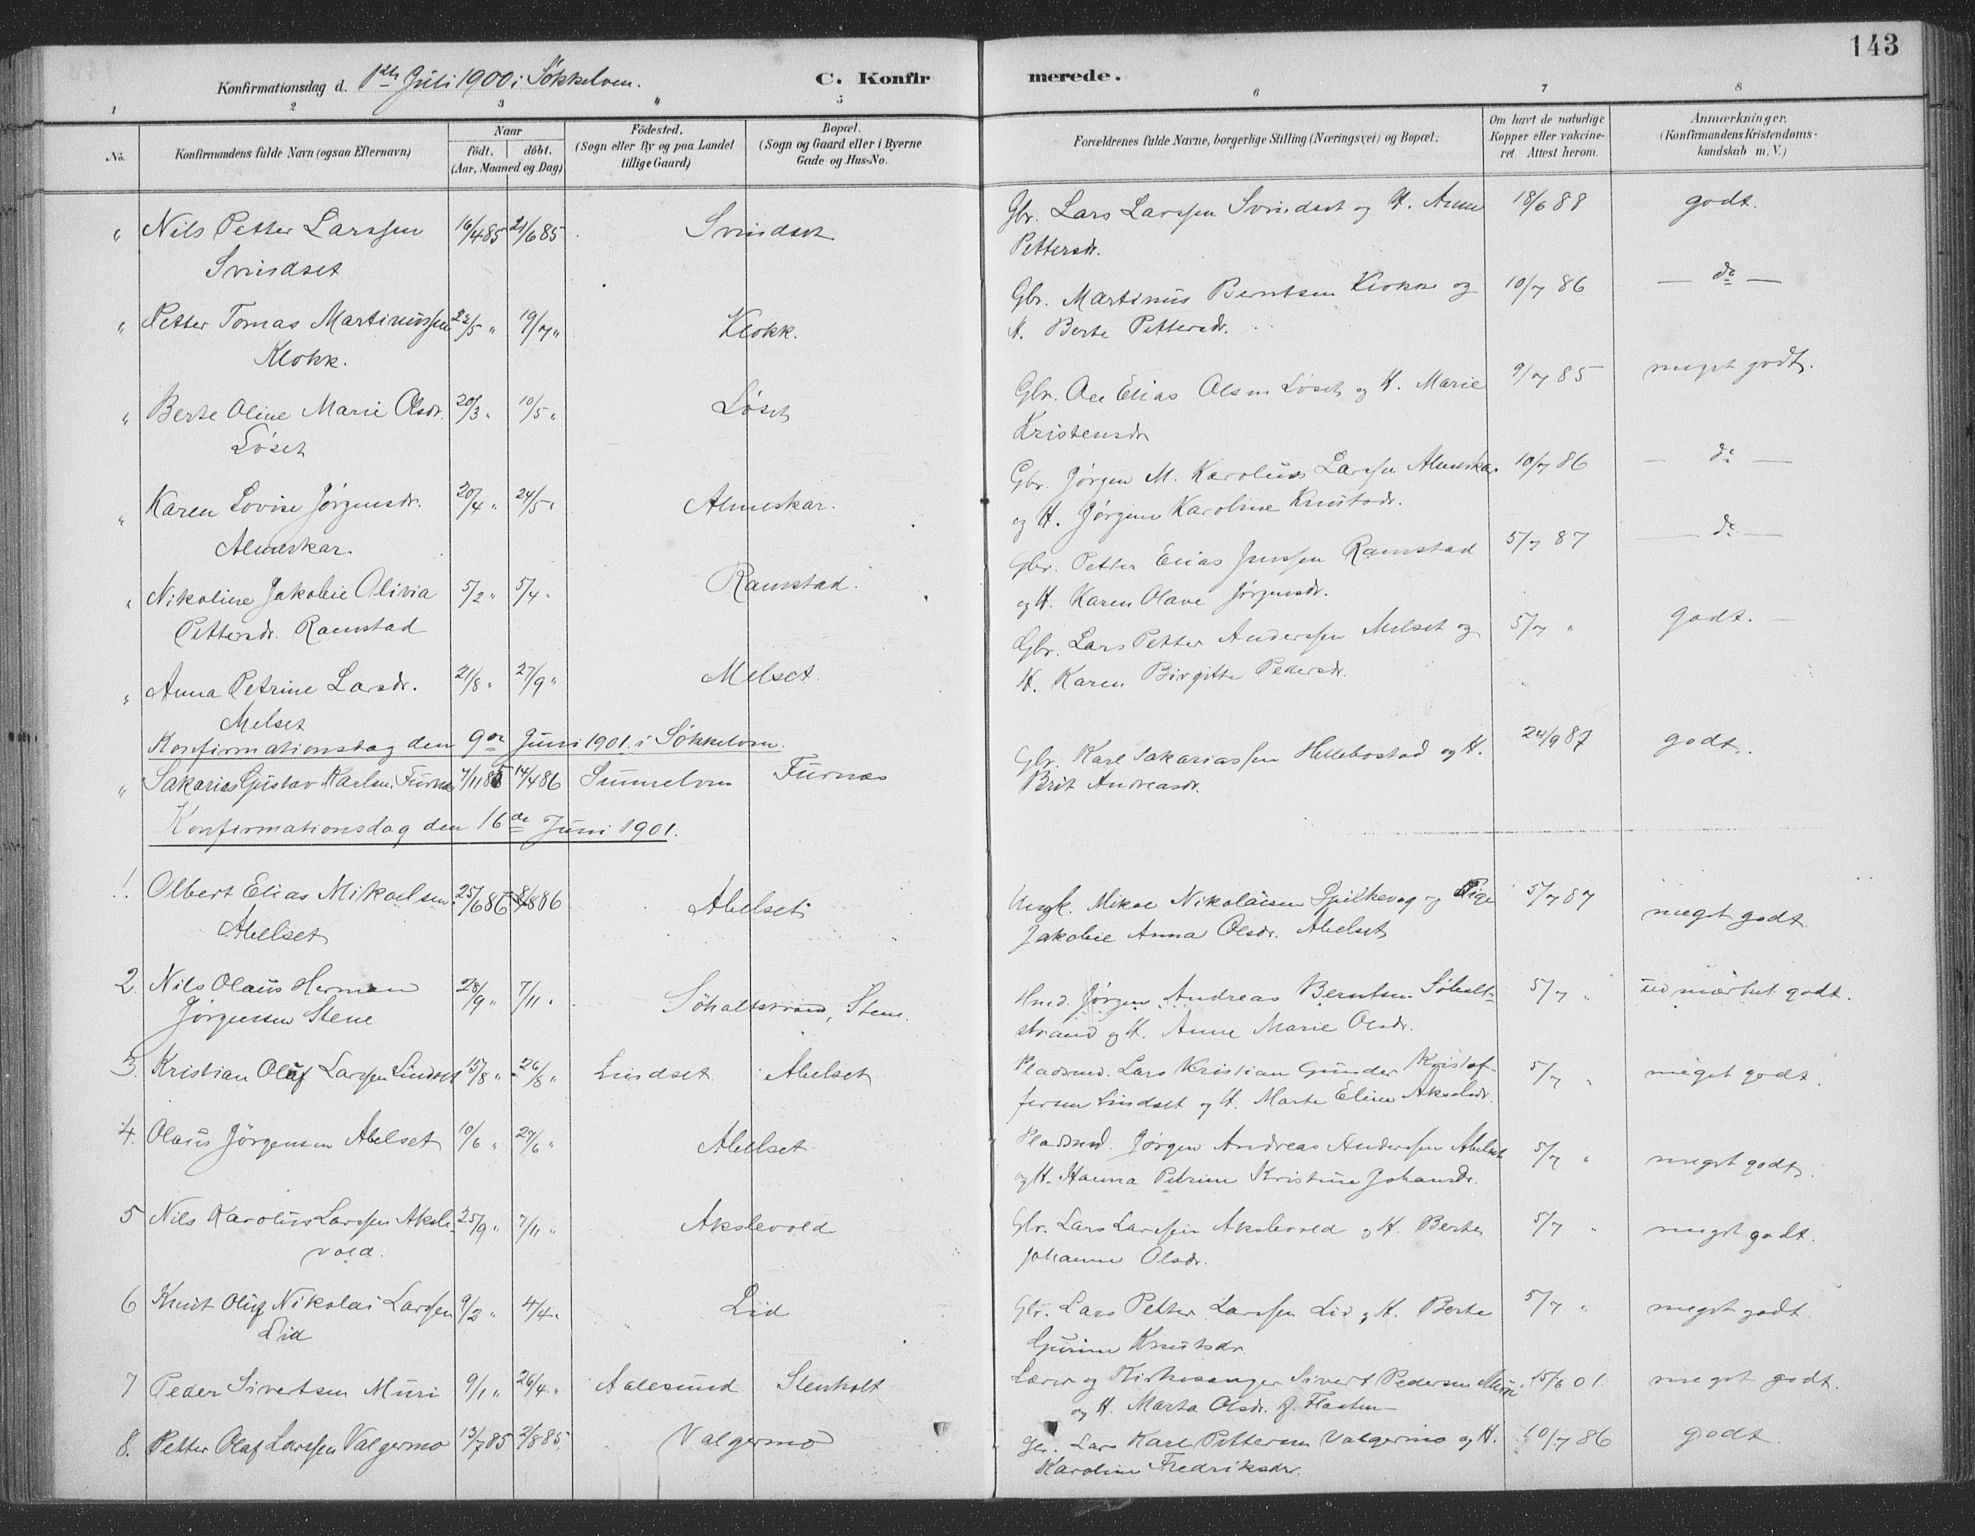 143
Konfirmationsdag d. 1ste Juli 1900 i Søkkelven.
C. Konfirmerede.
1 2 3 4 5 6 7 8
No.
Konfirmandens fulde Navn (ogsaa Efternavn)
Naar
Födt. döbt.
(Aar, Maaned og Dag)
Födested.
(Sogn eller By og paa Landet
tillige Gaard)
Bopæl.
(Sogn og Gaard eller i Byerne
Gade og Hus-No.
Forældrenes fulde Navne, borgerlige Stilling (Næringsvei) og Bopæl.
Om havt de naturlige
Kopper eller vakcine-
ret Attest herom.
Anmærkninger.
(Konfirmandens Kristendoms-
kundskab m. V.)
" Nils Petter Larssen 16/4 85 21/6 85 Svindset Gbr. Lars Larssen Svindset og H. Anne 18/6 88 godt.
Svindset Pettersdr.
" Petter Tomas Martinussen 22/5 " 19/7 " Klokk. Gbr. Martinus Berntsen Klokk og 10/7 86 — do —
Klokk. H. Berte Pettersdr.
" Berte Oline Marie Olsdr. 20/3 " 10/5 " Løset Gbr. Ole Elias Olsen Løset og H. Marie 9/7 85 meget godt.
Løset Kristensdr
" Karen Lovise Jørgensdr. 20/4 " 24/5 " Almeskar. Gbr. Jørgen M. Karolus Larssen Almeskar 10/7 86 — do —
Almeskar. og H. Jørgine Karoline Knutsdr.
" Nikoline Jakobie Olivia 5/2 " 5/4 " Ramstad. Gbr. Petter Elias Jenssen Ramstad 5/7 87 — do —
Pettersdr. Ramstad og H. Karen Olave Jørgensdr.
" Anna Petrine Larsdr. 21/8 " 27/9 " Melset. Gbr. Lars Petter Anderssen Melset og 5/7 " godt. —
Melset H. Karen Birgitte Pedersdr.
Konfirmationsdag den 9de Juni 1901 i Søkkelven.
" Sakarias Gustav Karlsen Furnæs 7/11 85 14/4 86 Sunnelven Furnæs Gbr. Karl Sakariassen Hellebostad og H. 24/9 87 godt.
Brit Andreasdr.
Konfirmationsdag den 16de Juni 1901.
1. Olbert Elias Mikaelsen 25/6 86 8/8 86 Abelset Ungk. Mikael Nikolaisen Spilkevag og Pige 5/7 87 meget godt
Abelset Jakobie Anna Olsdr. Abelset
2. Nils Olaus Herman 28/9 " 7/11 " Søholtstrand, Stene. Hmd. Jørgen Andreas Berntsen Søholt- 5/7 " udmærket godt.
Jørgensen Stene strand og H. Anne Marie Olsdr.
3. Kristian Oluf Larssen Lindset 15/8 " 26/8 " Lindset Abelset Pladsmd. Lars Kristian Gunder Kristof- 5/7 " meget godt.
fersen Lindset og H. Marte Eline Akselsdr.
4. Olaus Jörgensen Abelset 10/6 " 27/6 " Abelset Pladsmd. Jørgen Andreas Anderssen Abelset 5/7 " meget godt.
og H. Hanna Petrine Kristine Johansdr.
5 Nils Karolus Larssen Aksle- 25/9 " 7/11 " Akslevold Gbr. Lars Larssen Akslevold og H. Berte 5/7 " meget godt.
vold. Johanne Olsdr.
6 Knut Oluf Nikolai Larssen 9/2 " 4/4 " Lid Gbr. Lars Petter Larssen Lid og H. Berte 5/7 " meget godt.
Lid Gurine Knutsdr.
7 Peder Sivertsen Muri 9/1 " 26/4 " Aalesund Stenholt Lærer og Kirkesanger Sivert Pedersen Muri 15/6 01. meget godt.
og H. Marta Olsdr. f. Flaaten
8. Petter Olaf Larssen Valgermo 13/7 85 2/8 85 Valgermo Gbr. Lars Karl Pettersen Valgermo og H. 10/7 86 godt.
Karoline Fredriksdr.